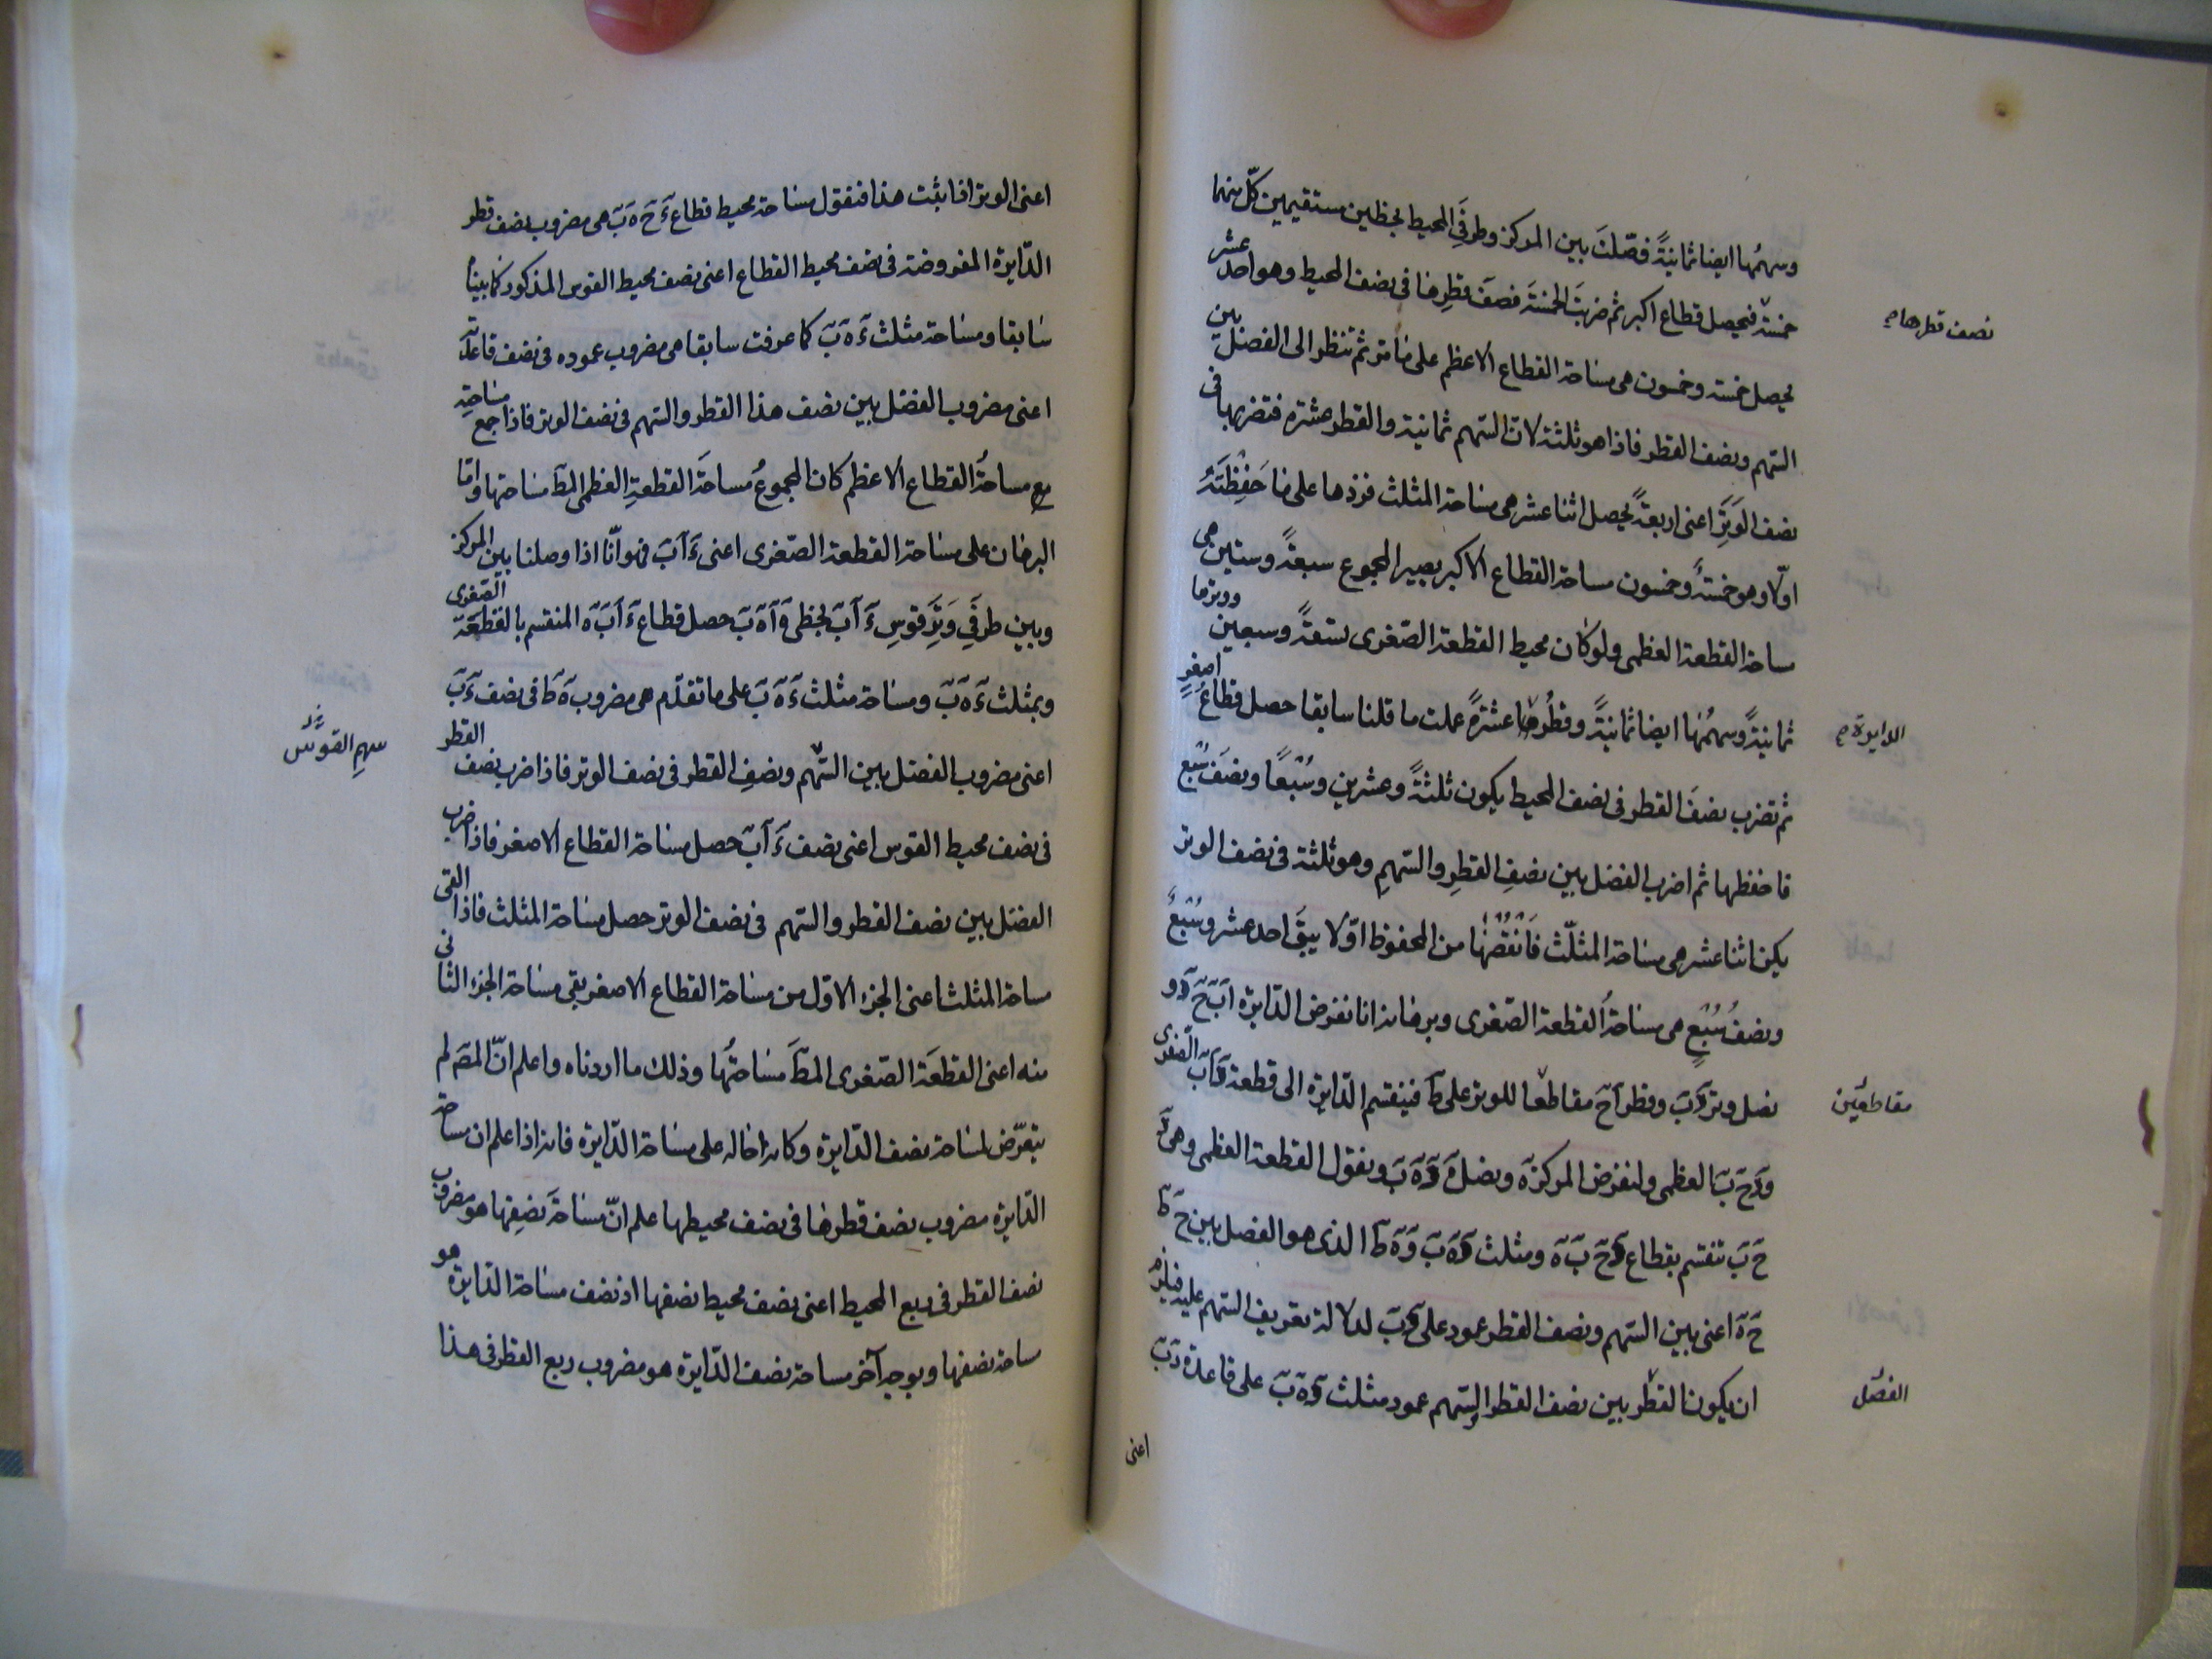 وسهمُها ايضا ثمانيةً فصّلتَ بين المركز وطرفَيِ المحيط بخطين مستقيمين كلّ منهما
خمسة فيحصل قطاع اكبر ثم ضربتَ الخمسةَ نصفَ قطرِها فى نصف المحيط وهو احد عشر
نصف قطرها
يحصل خمسة وخمسون هى مساحة القطاع الاعظم على ما مر ثم تنظر الى الفضل بين
السّهم ونصف القطر فاذا هو ثلثة لان السّهم ثمانية والقطر عشرة فتضربها فى
نصف الوَتَرِ اعنى اربعةً يحصل اثنا عشر هى مساحة المثلث فزدها على ما حَفِظْتَهُ
اوّلا وهو خمسةً وخمسون مساحة القطاع الاكبر يصير المجموع سبعةً وستين هى
مساحة القطعة العظمى ولو كان محيط القطعة الصّغرى تسعةً وسبعين ووترها
ثمانيةً وسهمُها ايضا ثمانيةً وقطرُها عشرةً عملت ما قلنا سابقا حصل قطاعٌ اصغر
الدايرة
ثم تضرب نصفَ القطر فى نصف المحيط يكون ثلثةً وعشرين وسُبْعًا ونصفَ سُبْع
فاحفظها ثم اضرب الفضل بين نصفِ القطرِ والسّهمِ وهو ثلثة فى نصف الوتر
يكن اثنا عشر هى مساحة المثلّث فانْقُصْها من المحفوظ اوّلا يبقَ احد عشر وسُبْعٌ
ونصفُ سُبْعٍ هى مساحةُ القطعة الصّغرى وبرهانه انا نفرض الدّايرة اَبَ حَ دَ و
نصل وتر دَ بَ وقطر اَ حَ مقاطعا للوتر على طَ فينقسم الدّايرة الى قطعة دَ اَ بَ الصّغرى
مقاطعَين
و دَ حَ بَ العظمى ولنفرض المركز هَ ونصل دَ هَ هَ بَ ونقول القطعة العظمى وهى دَ
حَ بَ تنقسم بقطاع دَ حَ بَ هَ ومثلث دَ هَ بَ و هَ طَ الذى هو الفضل بين حَ طَ
حَ هَ اعنى بين السّهم ونصف القطر عمود على دَ بَ لدلالة تعريف السّهم عليه فيلزم
ان يكون القطر بين نصف القطر والسّهم عمود مثلث دَ هَ بَ على قاعدة دَ بَ
الفضل
اعنى
اعنى الوتر اذا ثبت هذا فنقول مساحة محيط قطاع دَ حَ هَ بَ هى مضروب نصف قطر
الدّايرة المفروضة فى نصف محيط القطاع اعنى نصف محيط القوس المذكور كما بينا
سابقا ومساحة مثلث دَ هَ بَ كما عرفت سابقا هى مضروب عموده فى نصف قاعدته
اعنى مضروب الفضل بين نصف هذا القطر والسّهم فى نصف الوتر فاذا جمع مساحته
مع مساحةُ القطاع الاعظم كان المجموعُ مساحةَ القطعةِ العظمى المط مساحتها وامّا
البرهان على مساحة القطعة الصّغرى اعنى دَ اَ بَ فهو انّا اذا وصلنا بين المركز
وبين طرفَيِ وَتَرِ قوسِ دَ اَ بَ بخطى دَ هَ هَ بَ حصل قطاع دَ اَ بَ هَ المنقسم بالقطعة الصّغرى
وبمثلث دَ هَ بَ ومساحة مثلث دَ هَ بَ على ما تقدّم هى مضروب هَ طَ فى نصف دَ بَ
اعنى مضروب الفضل بين السّهم ونصفِ القطر فى نصف الوتر فاذا ضرب نصف القطر
سهمِ القوس
فى نصف محيط القوس اعنى نصف دَ اَ بَ حصل مساحة القطاع الاصغر فاذا ضرب
الفضل بين نصف القطر والسّهم فى نصف الوتر حصل مساحة المثلث فاذا القى
مساحة المثلث اعنى الجزء الاوّل من مساحة القطاع الاصغر بقى مساحة الجزء الثانى
منه اعنى القطعةَ الصّغرى المطَ مَساحتُها وذلك ما اردناه واعلم انّ المص لم
يتعرّض لمساحة نصف الدّايرة وكانه احاله على مساحة الدّايرة فانه اذا علم ان مساحة
الدّايرة مضروب نصف قطرها فى نصف محيطها علم انّ مساحةَ نصفِها هو مضروب
نصف القطر فى ربع المحيط اعنى نصف محيط نصفها اذ نصف مساحة الدّايرة هو
مساحة نصفها وبوجه آخر مساحة نصف الدّايرة هو مضروب ربع القطر فى هذا